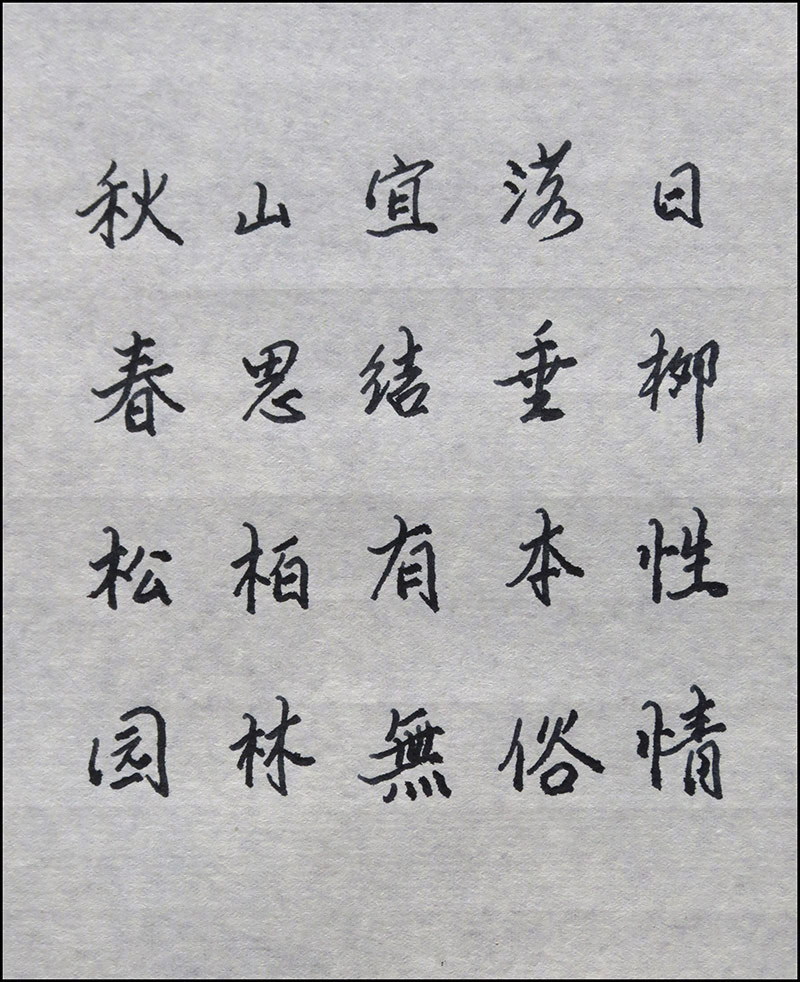 秋山宜落日
春思结垂柳
松柏有本性
园林無俗情